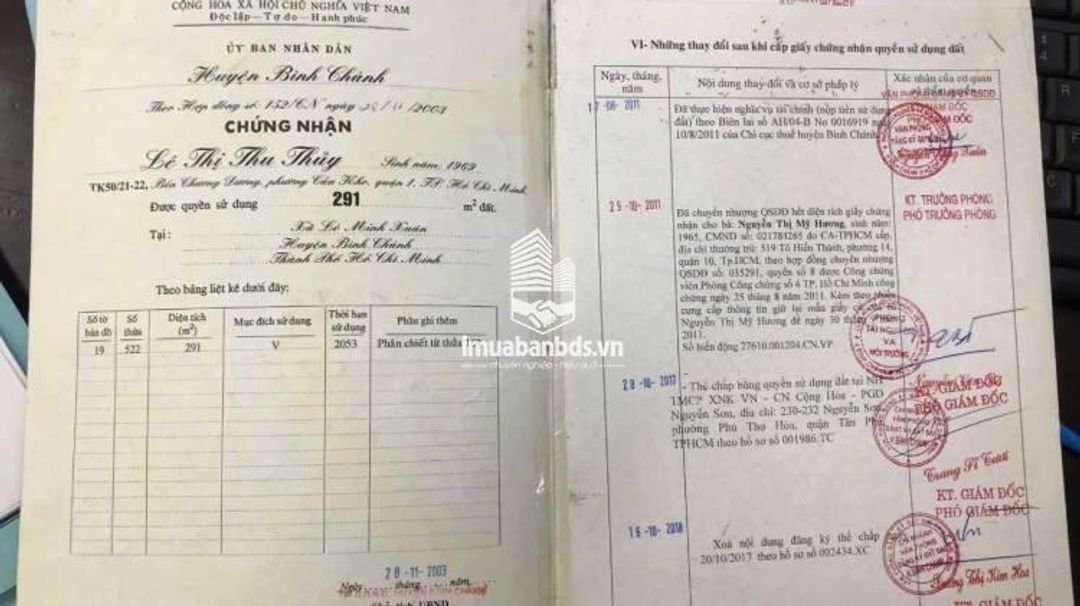 CỘNG HÒA XÃ HỘI CHỦ NGHĨA VIỆT NAM
Độc lập - Tự do - Hạnh phúc
ỦY BAN NHÂN DÂN
Huyện Bình Chánh
Theo Hợp đồng số: 152/CN ngày 2003
CHỨNG NHẬN
Lê Thị Thu Thủy Sinh năm 1969
TK50/21-22, Bến Chương Dương, phường Cầu Kho, quận 1, TP. Hồ Chí Minh
Được quyền sử dụng 291 m² đất.
Tại: Xã Lê Minh Xuân
Huyện Bình Chánh
Thành Phố Hồ Chí Minh
Theo bảng liệt kê dưới đây:
Số tờ bản đồ Số thửa Diện tích (m²) Mục đích sử dụng Thời hạn sử dụng Phần ghi thêm
19 522 291 V 2053 Phân chiết từ thửa
28-11-2003
Ngày tháng năm
imuabanbds.vn
chuyên nghiệp - hiệu quả
VI- Những thay đổi sau khi cấp giấy chứng nhận quyền sử dụng đất
Ngày, tháng, năm Nội dung thay đổi và cơ sở pháp lý Xác nhận của cơ quan
17-08-2011
Đã thực hiện nghĩa vụ tài chính (nộp tiền sử dụng
đất) theo Biên lai số AH/04-B No 0016919 ngày
10/8/2011 của Chi cục thuế huyện Bình Chánh
29-10-2011
KT. TRƯỞNG PHÒNG
PHÓ TRƯỞNG PHÒNG
Đã chuyển nhượng QSDĐ hết diện tích giấy chứng
nhận cho bà: Nguyễn Thị Mỹ Hương, sinh năm:
1965, CMND số: 021784265 do CA-TPHCM cấp,
địa chỉ thường trú: 519 Tô Hiến Thành, phường 14,
quận 10, Tp.HCM, theo hợp đồng chuyển nhượng
QSDĐ số: 035291, quyển số 8 được Công chứng
viên Phòng Công chứng số 4 TP. Hồ Chí Minh công
chứng ngày 25 tháng 8 năm 2011. Kèm theo phiếu
cung cấp thông tin giữ lại mẫu giấy
Nguyễn Thị Mỹ Hương đề ngày 30 tháng
2011.
Số biến động 27610.001204.CN.VP
20-10-2017
- Thế chấp bằng quyền sử dụng đất tại NH
TMCP XNK VN - CN Cộng Hòa - PGD
Nguyễn Sơn, địa chỉ: 230-232 Nguyễn Sơn,
phường Phú Thọ Hòa, quận Tân Phú,
TPHCM theo hồ sơ số 001986.TC
KT. GIÁM ĐỐC
PHÓ GIÁM ĐỐC
KT. GIÁM ĐỐC
PHÓ GIÁM ĐỐC
16-10-2018
Xoá nội dung đăng ký thế chấp
20/10/2017 theo hồ sơ số 002434.XC
KT. GIÁM ĐỐC